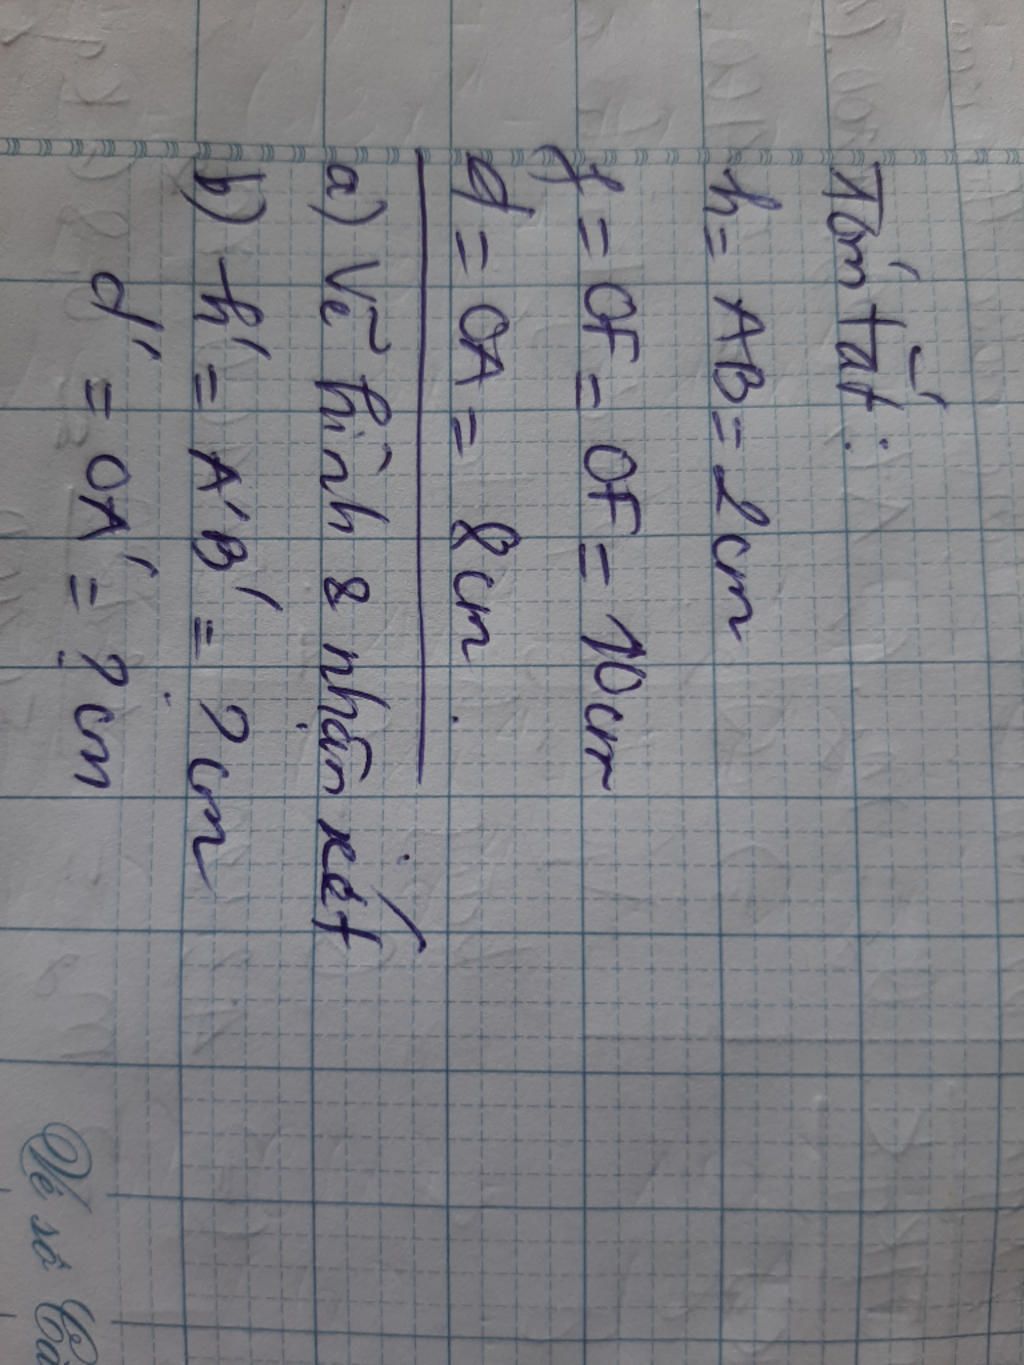 Tóm tắt:
h = AB = 2 cm
f = OF = OF = 10 cm
d = OA = 8 cm.
a) Vẽ hình & nhận xét
b) h' = A'B' = ? cm
d' = OA' = ? cm
Vẽ số